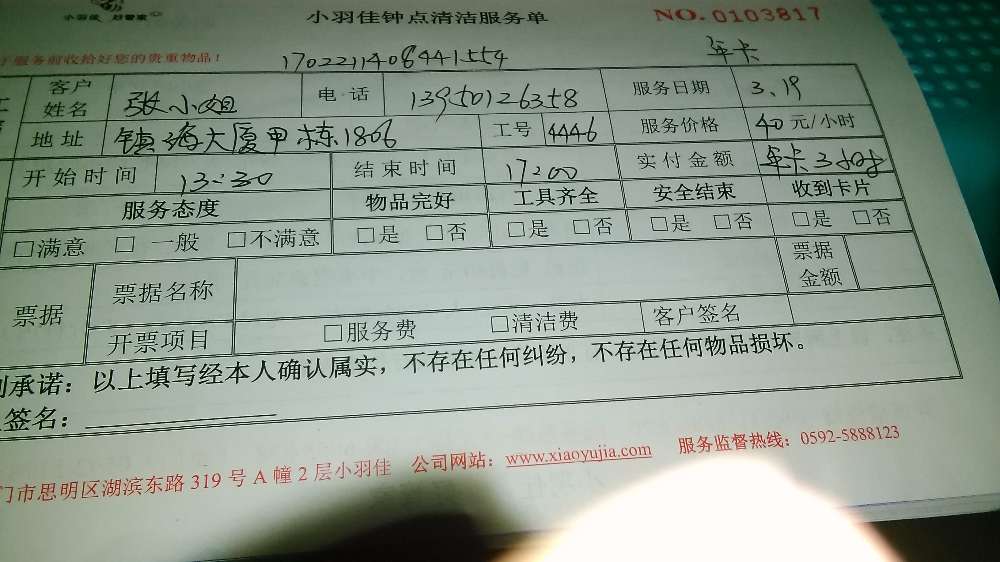 小羽佳 好管家 小羽佳钟点清洁服务单 NO. 0103817
服务前收拾好您的贵重物品! 1702211408441554 年卡
客户姓名 张小姐 电话 13950126358 服务日期 3.19
地址 镇海大厦甲栋1806 工号 4446 服务价格 40元/小时
开始时间 13:30 结束时间 17:00 实付金额 年卡3小时
服务态度 物品完好 工具齐全 安全结束 收到卡片
□满意 □一般 □不满意 □是 □否 □是 □否 □是 □否 □是 □否
票据 票据名称 票据金额
开票项目 □服务费 □清洁费 客户签名
承诺:以上填写经本人确认属实,不存在任何纠纷,不存在任何物品损坏。
签名:
门市思明区湖滨东路319号A幢2层小羽佳 公司网站:www.xiaoyujia.com 服务监督热线:0592-5888123